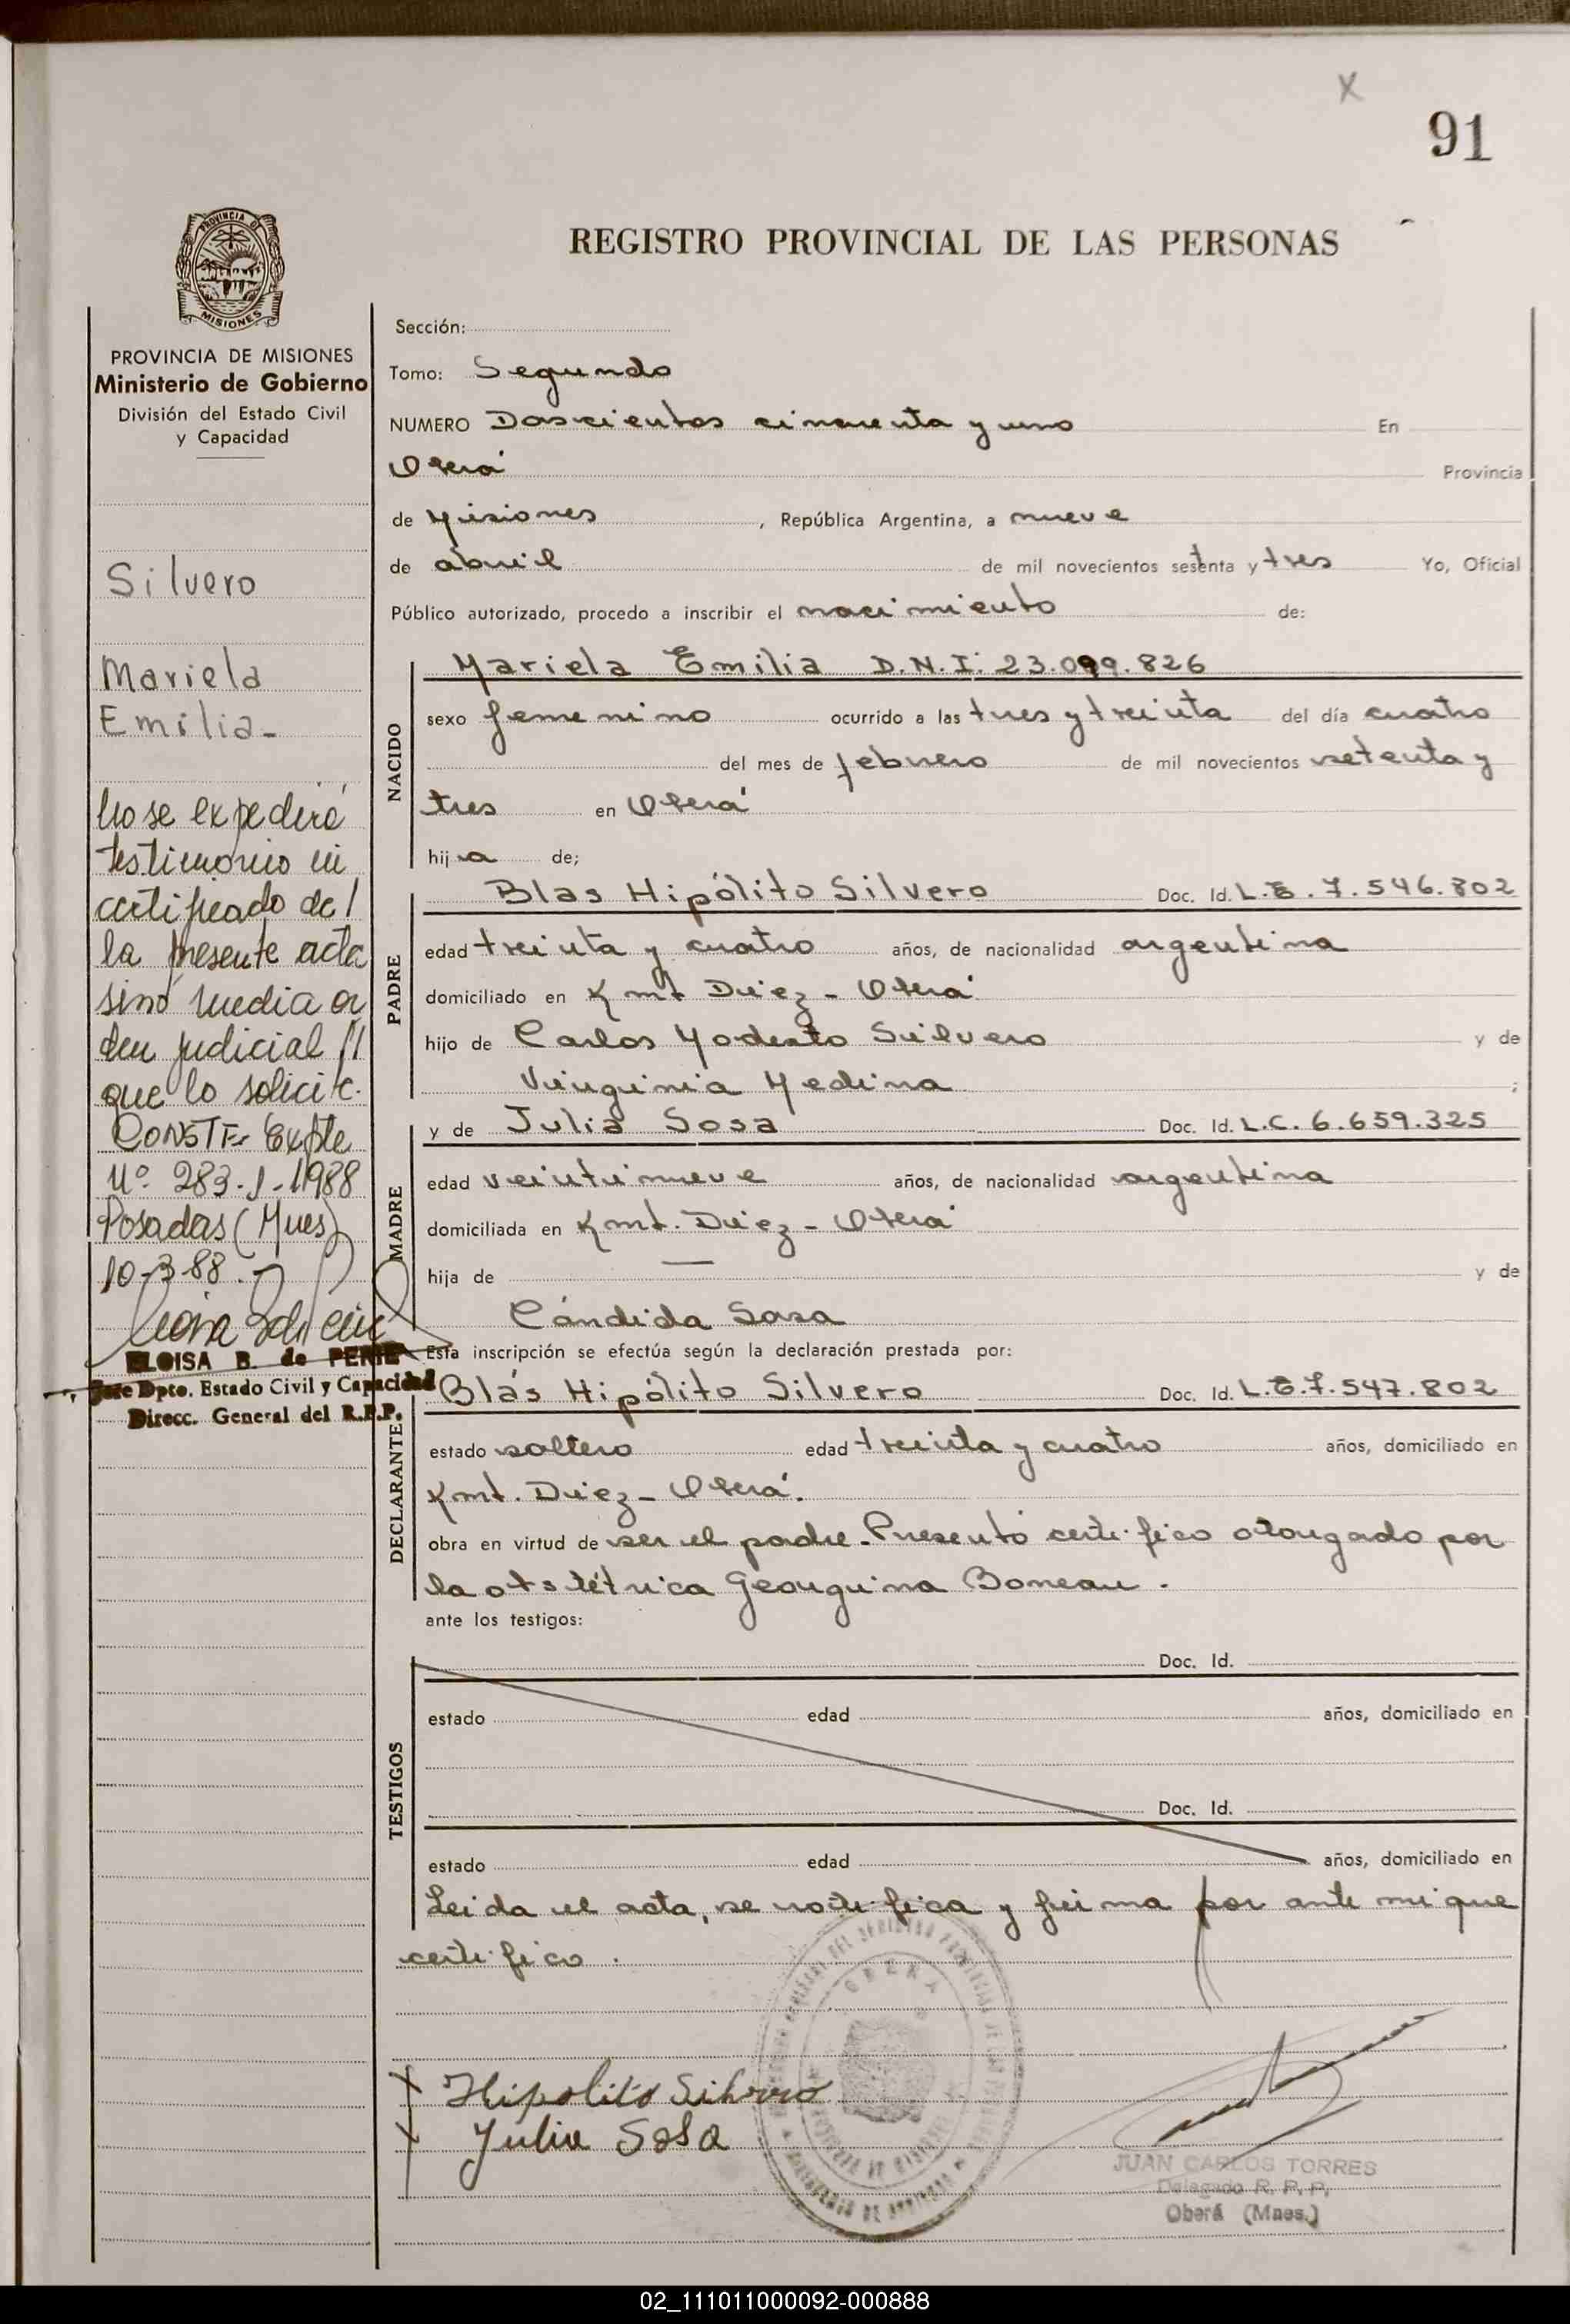 91
REGISTRO PROVINCIAL DE LAS PERSONAS
PROVINCIA DE MISIONES
MISIONES
PROVINCIA DE MISIONES
Ministerio de Gobierno
División del Estado Civil
y Capacidad
Silvero
Mariela
Emilia-
No se expedirá
testimonio ni
certificado de/
la presente acta
sinó media or
den judicial //
que lo solicite.
CONSTE Expte
Nº 283-J-1988
Posadas (Mnes)
10-3-88.-
ELOISA B. de PERIE
Jefe Dpto. Estado Civil y Capacidad
Direcc. General del R.P.P.
Sección:
Tomo: Segundo
NUMERO Doscientos cincuenta y uno En
Oberá Provincia
de Misiones , República Argentina, a nueve
de abril de mil novecientos setenta y tres Yo, Oficial
Público autorizado, procedo a inscribir el nacimiento de:
NACIDO
Mariela Emilia D.N.I: 23.099.826
sexo femenino ocurrido a las tres y treinta del día cuatro
del mes de febrero de mil novecientos setenta y
tres en Oberá
hija de;
PADRE
Blas Hipólito Silvero Doc. Id. L.E. 7.546.802
edad treinta y cuatro años, de nacionalidad argentina
domiciliado en Kmt Diez - Oberá
hijo de Carlos Modesto Silvero y de
Virginia Medina ;
MADRE
y de Julia Sosa Doc. Id. L.C. 6.659.325
edad veintinueve años, de nacionalidad argentina
domiciliada en Kmt. Diez - Oberá
hija de — y de
Cándida Sosa
Esta inscripción se efectúa según la declaración prestada por:
DECLARANTE
Blás Hipólito Silvero Doc. Id. L.E.7.547.802
estado soltero edad treinta y cuatro años, domiciliado en
Kmt. Diez - Oberá.
obra en virtud de ser el padre. Presentó certifico otorgado por
la obstétrica Georguina Boneau.
ante los testigos:
TESTIGOS
Doc. Id.
estado edad años, domiciliado en
Doc. Id.
estado edad años, domiciliado en
Leida el acta, se notifica y firma por ante mi que
certifico.
OBERA
Hipolito Silvero
Julia Sosa
JUAN CARLOS TORRES
Delegado R. P. P.
Oberá (Mnes.)
02_111011000092-000888